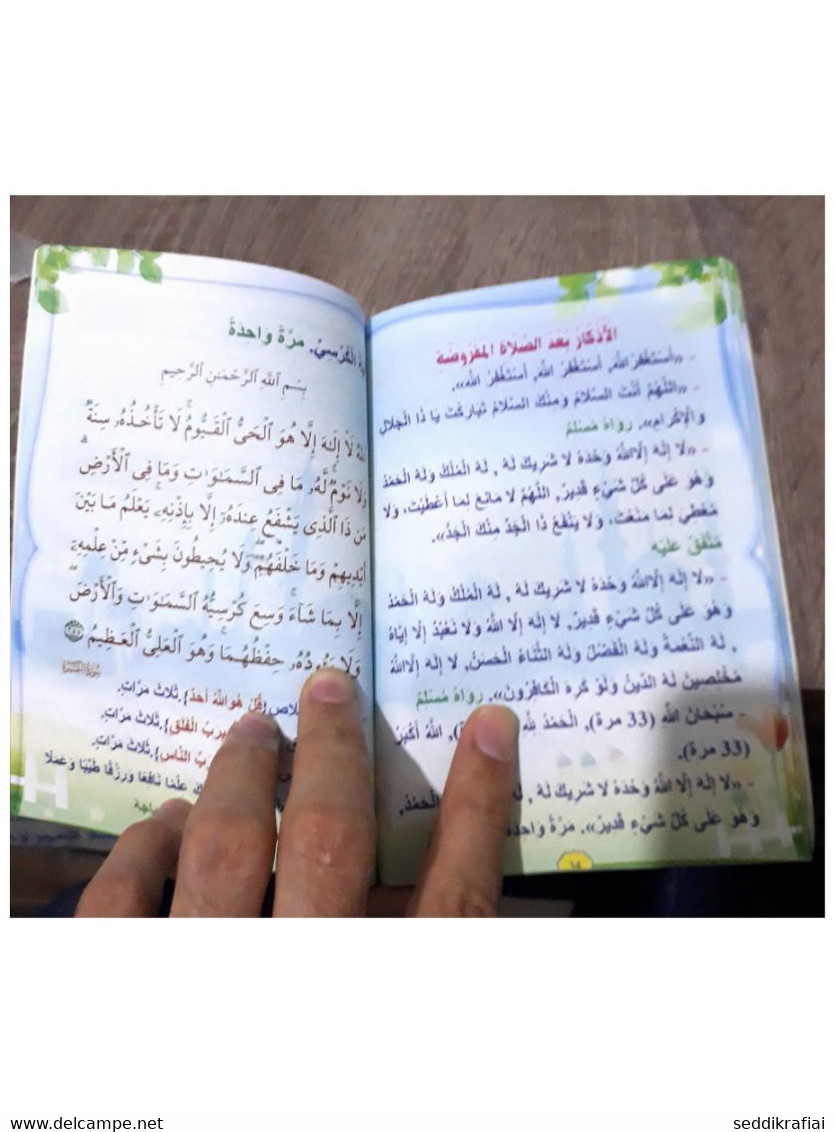 الأَذْكَارُ بَعْدَ الصَّلَاةِ المَفْرُوضَةِ
- «أَسْتَغْفِرُ اللهَ, أَسْتَغْفِرُ اللهَ, أَسْتَغْفِرُ اللهَ».
- «اللَّهُمَّ أَنْتَ السَّلَامُ وَمِنْكَ السَّلَامُ تَبَارَكْتَ يَا ذَا الْجَلَالِ
وَالْإِكْرَامِ». رَوَاهُ مُسْلِمٌ
- «لَا إِلَهَ إِلَّا اللهُ وَحْدَهُ لَا شَرِيكَ لَهُ , لَهُ الْمُلْكُ وَلَهُ الْحَمْدُ
وَهُوَ عَلَى كُلِّ شَيْءٍ قَدِيرٌ, اللَّهُمَّ لَا مَانِعَ لِمَا أَعْطَيْتَ, وَلَا
مُعْطِيَ لِمَا مَنَعْتَ, وَلَا يَنْفَعُ ذَا الْجَدِّ مِنْكَ الْجَدُّ».
مُتَّفَقٌ عَلَيْهِ
- «لَا إِلَهَ إِلَّا اللهُ وَحْدَهُ لَا شَرِيكَ لَهُ , لَهُ الْمُلْكُ وَلَهُ الْحَمْدُ
وَهُوَ عَلَى كُلِّ شَيْءٍ قَدِيرٌ, لَا إِلَهَ إِلَّا اللهُ وَلَا نَعْبُدُ إِلَّا إِيَّاهُ
, لَهُ النِّعْمَةُ وَلَهُ الْفَضْلُ وَلَهُ الثَّنَاءُ الْحَسَنُ, لَا إِلَهَ إِلَّا اللهُ
مُخْلِصِينَ لَهُ الدِّينَ وَلَوْ كَرِهَ الْكَافِرُونَ». رَوَاهُ مُسْلِمٌ
- سُبْحَانَ اللهِ (33 مرة), الْحَمْدُ لِلَّهِ, اللهُ أَكْبَرُ
(33 مرة).
- «لَا إِلَهَ إِلَّا اللهُ وَحْدَهُ لَا شَرِيكَ لَهُ , الْحَمْدُ,
وَهُوَ عَلَى كُلِّ شَيْءٍ قَدِيرٌ». مَرَّةً وَاحِدَة
الْكُرْسِيِّ. مَرَّةً وَاحِدَةً
بِسْمِ ٱللَّهِ ٱلرَّحْمَٰنِ ٱلرَّحِيمِ
ٱللَّهُ لَآ إِلَٰهَ إِلَّا هُوَ ٱلْحَىُّ ٱلْقَيُّومُ ۚ لَا تَأْخُذُهُۥ سِنَةٌ
وَلَا نَوْمٌ ۚ لَّهُۥ مَا فِى ٱلسَّمَٰوَٰتِ وَمَا فِى ٱلْأَرْضِ ۗ
مَن ذَا ٱلَّذِى يَشْفَعُ عِندَهُۥٓ إِلَّا بِإِذْنِهِۦ ۚ يَعْلَمُ مَا بَيْنَ
أَيْدِيهِمْ وَمَا خَلْفَهُمْ ۖ وَلَا يُحِيطُونَ بِشَىْءٍ مِّنْ عِلْمِهِۦٓ
إِلَّا بِمَا شَآءَ ۚ وَسِعَ كُرْسِيُّهُ ٱلسَّمَٰوَٰتِ وَٱلْأَرْضَ ۖ
وَلَا يَـُٔودُهُۥ حِفْظُهُمَا ۚ وَهُوَ ٱلْعَلِىُّ ٱلْعَظِيمُ
{قُلْ هُوَ اللهُ أَحَدٌ}. ثَلَاثَ مَرَّاتٍ.
بِرَبِّ الْفَلَقِ}. ثَلَاثَ مَرَّاتٍ.
النَّاسِ}. ثَلَاثَ مَرَّاتٍ.
عِلْمًا نَافِعًا وَرِزْقًا طَيِّبًا وَعَمَلًا
www.delcampe.net
seddikrafiai